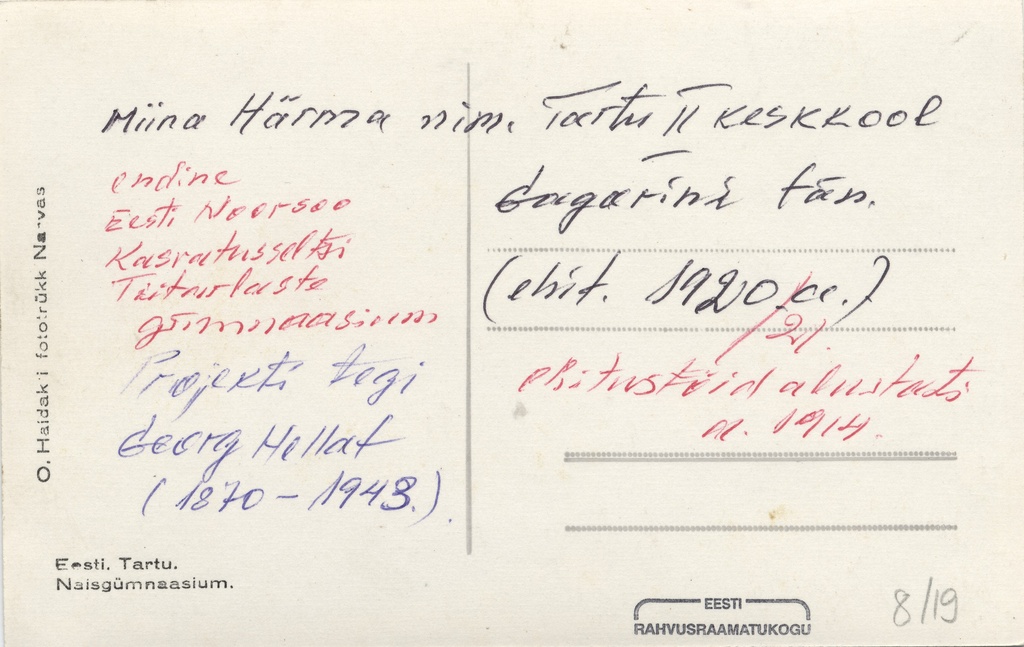 Miina Härma nim. Tartu II keskkool
Gagarini tän.
(ehit. 1920/21. a.)
endine
Eesti Noorsoo
Kasvatusseltsi
Tütarlaste
gümnaasium
ehitustöid alustati
a. 1914.
Projekti tegi
Georg Hellat
(1870 - 1943.).
O. Haidak'i fototrükk Narvas
Eesti. Tartu.
Naisgümnaasium.
EESTI
RAHVUSRAAMATUKOGU
8/19